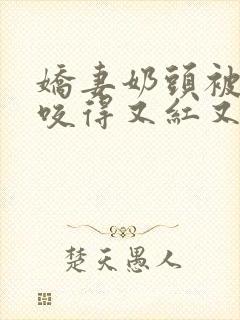 嬌妻奶頭被
咬得又紅又
楚天愚人